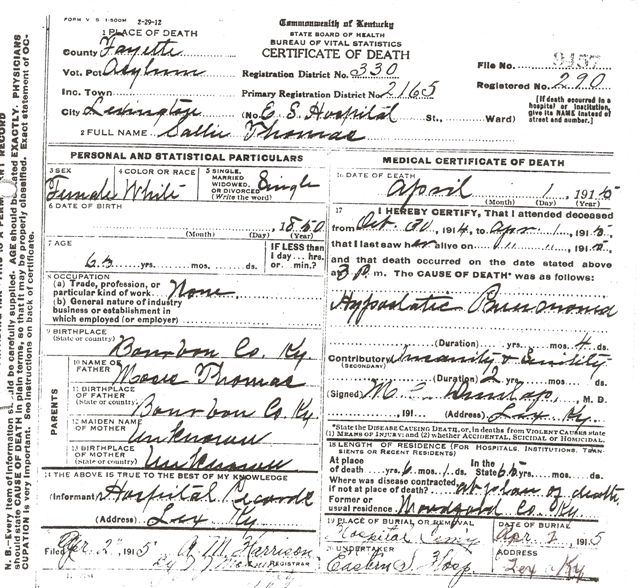 FORM V S 1-500M 2-29-12
Commonwealth of Kentucky
STATE BOARD OF HEALTH
BUREAU OF VITAL STATISTICS
CERTIFICATE OF DEATH
1 PLACE OF DEATH
County Fayette
Vot. Pct Asylum
Registration District No. 330
File No. 9457
Inc. Town
Primary Registration District No. 2165
Registered No. 290
City Lexington (No. E. S. Hospital St., Ward)
[If death occurred in a hospital or institution, give its NAME instead of street and number.]
2 FULL NAME Sallie Thomas
PERSONAL AND STATISTICAL PARTICULARS
3 SEX Female
4 COLOR OR RACE White
5 SINGLE, MARRIED WIDOWED, OR DIVORCED (Write the word) Single
6 DATE OF BIRTH
, 1850
(Month) (Day) (Year)
7 AGE
65 yrs. mos. ds.
IF LESS than 1 day... hrs. or min.?
8 OCCUPATION
(a) Trade, profession, or particular kind of work None
(b) General nature of industry business or establishment in which employed (or employer)
9 BIRTHPLACE
(State or country) Bourbon Co. Ky.
PARENTS
10 NAME OF FATHER Moses Thomas
11 BIRTHPLACE OF FATHER
(State or country) Bourbon Co Ky
12 MAIDEN NAME OF MOTHER Unknown
13 BIRTHPLACE OF MOTHER
(State or country) Unknown
14 THE ABOVE IS TRUE TO THE BEST OF MY KNOWLEDGE
(Informant) Hospital Records
(Address) Lex Ky
Filed Apr. 2 1915 A M Harrison
REGISTRAR
MEDICAL CERTIFICATE OF DEATH
16 DATE OF DEATH
April 1, 1915
(Month) (Day) (Year)
17 I HEREBY CERTIFY, That I attended deceased
from Oct. 30, 1914, to Apr. 1, 1915,
that I last saw her alive on " " " ", 1915,
and that death occurred on the date stated above
at 3 P. m. The CAUSE OF DEATH* was as follows:
Hypostatic Pneumonia
(Duration) yrs. mos. 4 ds.
Contributory Insanity & Senility
(SECONDARY)
(Duration) 2 yrs. mos. ds.
(Signed) M. Dunlap, M. D.
, 191 (Address) Lex Ky.
*State the DISEASE CAUSING DEATH, or, in deaths from VIOLENT CAUSES state (1) MEANS OF INJURY; and (2) whether ACCIDENTAL, SUICIDAL or HOMICIDAL.
18 LENGTH OF RESIDENCE (FOR HOSPITALS, INSTITUTIONS, TRANSIENTS OR RECENT RESIDENTS)
At place of death yrs. 6 mos. 1 ds. In the State 65 yrs. mos. ds.
Where was disease contracted, if not at place of death? at place of death
Former or usual residence Woodford Co. Ky
19 PLACE OF BURIAL OR REMOVAL
Hospital Cem'y
DATE OF BURIAL
Apr 2, 1915
20 UNDERTAKER
Eastern S. Hosp
ADDRESS
Lex Ky
N. B.—Every item of information should be carefully supplied. AGE should be stated EXACTLY. PHYSICIANS
should state CAUSE OF DEATH in plain terms, so that it may be properly classified. Exact statement of OC-
CUPATION is very important. See instructions on back of certificate.